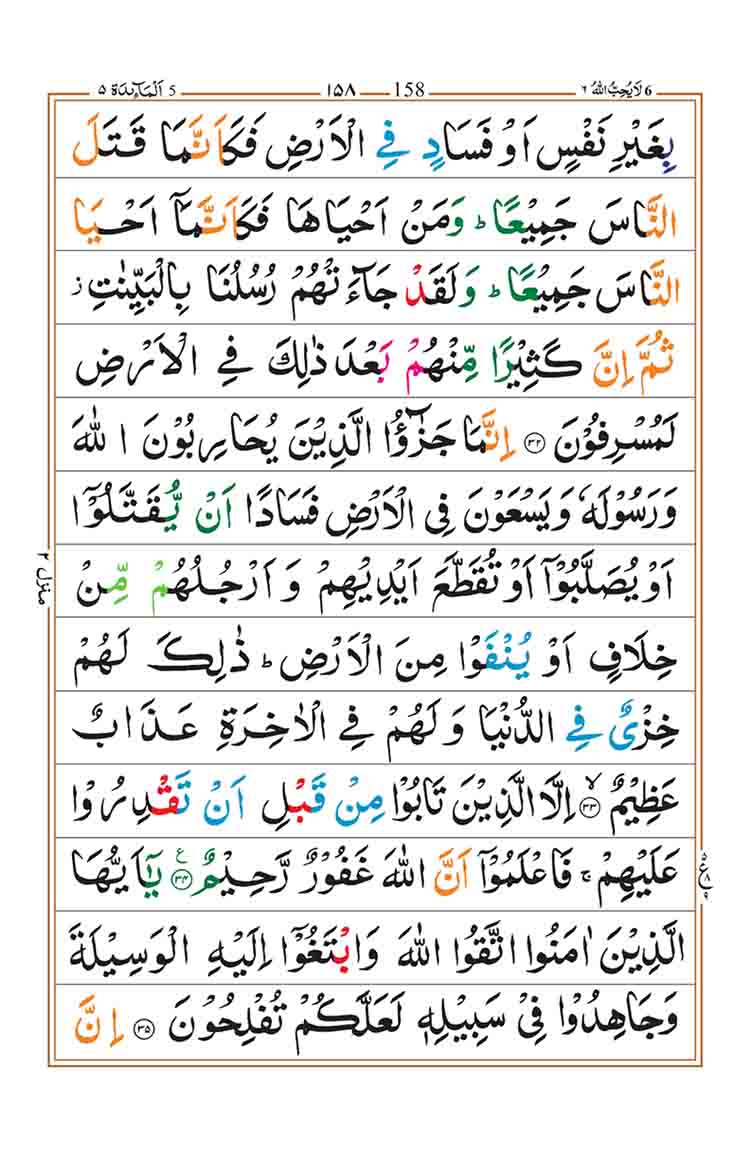 ٦ لَا يُحِبُّ اللهُ 6
158 ١٥٨
5 اَلْمَآئِدَة ٥
بِغَيْرِ نَفْسٍ اَوْ فَسَادٍ فِي الْاَرْضِ فَكَاَنَّمَا قَتَلَ
النَّاسَ جَمِيْعًا ؕ وَمَنْ اَحْيَاهَا فَكَاَنَّمَاۤ اَحْيَا
النَّاسَ جَمِيْعًا ؕ وَلَقَدْ جَآءَتْهُمْ رُسُلُنَا بِالْبَيِّنٰتِ ز
ثُمَّ اِنَّ كَثِيْرًا مِّنْهُمْ بَعْدَ ذٰلِكَ فِي الْاَرْضِ
لَمُسْرِفُوْنَ ۝٣٢ اِنَّمَا جَزٰٓؤُا الَّذِيْنَ يُحَارِبُوْنَ اللهَ
وَرَسُوْلَهٗ وَيَسْعَوْنَ فِي الْاَرْضِ فَسَادًا اَنْ يُّقَتَّلُوْۤا
اَوْ يُصَلَّبُوْۤا اَوْ تُقَطَّعَ اَيْدِيْهِمْ وَاَرْجُلُهُمْ مِّنْ
خِلَافٍ اَوْ يُنْفَوْا مِنَ الْاَرْضِ ؕ ذٰلِكَ لَهُمْ
خِزْيٌ فِي الدُّنْيَا وَلَهُمْ فِي الْاٰخِرَةِ عَذَابٌ
عَظِيْمٌ ۝٣٣ۙ اِلَّا الَّذِيْنَ تَابُوْا مِنْ قَبْلِ اَنْ تَقْدِرُوْا
عَلَيْهِمْ ۚ فَاعْلَمُوْۤا اَنَّ اللهَ غَفُوْرٌ رَّحِيْمٌ ۝٣٤ ع يٰۤاَيُّهَا
الَّذِيْنَ اٰمَنُوا اتَّقُوا اللهَ وَابْتَغُوْۤا اِلَيْهِ الْوَسِيْلَةَ
وَجَاهِدُوْا فِيْ سَبِيْلِهٖ لَعَلَّكُمْ تُفْلِحُوْنَ ۝٣٥ اِنَّ
منزل ٢